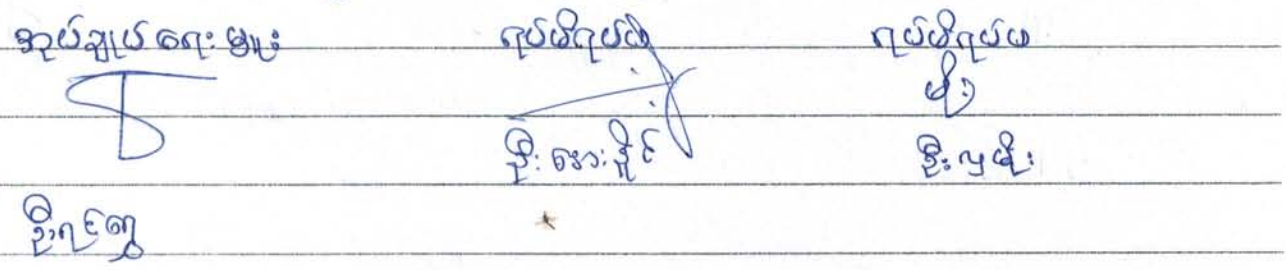 အုပ်ချုပ်ရေးမှူး ရပ်မိရပ်ဖ ရပ်မိရပ်ဖ
မိုး
ဦးအေးနိုင် ဦးလှမိုး